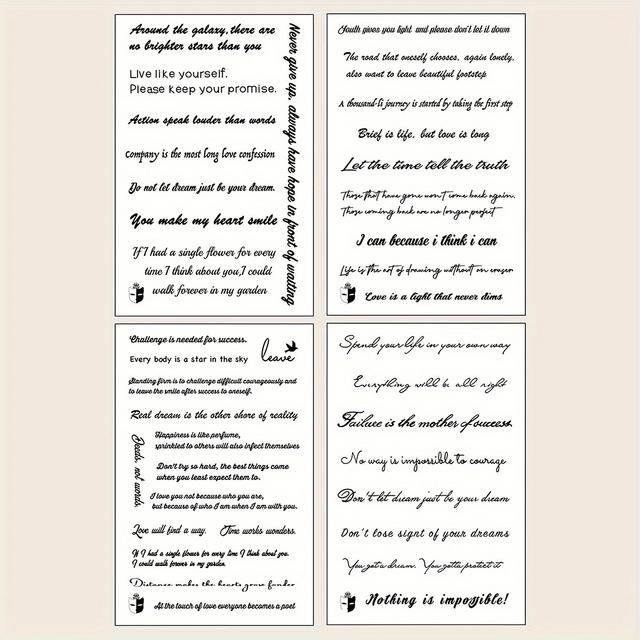 Around the galaxy, there are
no brighter stars than you
Live like yourself.
Please keep your promise.
Action speak louder than words
Company is the most long love confession
Do not let dream just be your dream.
You make my heart smile
If I had a single flower for every
time I think about you, I could
walk forever in my garden
Never give up, always have hope in front of waiting
Youth gives you light and please don't let it down
The road that oneself chooses, again lonely,
also want to leave beautiful footstep
A thousand-li journey is started by taking the first step
Brief is life, but love is long
Let the time tell the truth
Those that have gone won't come back again.
Those coming back are no longer perfect
I can because i think i can
Life is the art of drawing without an eraser
Love is a light that never dims
Challenge is needed for success.
Every body is a star in the sky
leave
Standing firm is to challenge difficult courageously and
to leave the smile after success to oneself.
Real dream is the other shore of reality
Deeds, not words.
Happiness is like perfume,
sprinkled to others will also infect themselves
Don't try so hard, the best things come
when you least expect them to.
I love you not because who you are,
but because of who I am when I am with you.
Love will find a way. Time works wonders.
If I had a single flower for every time I think about you.
I could walk forever in my garden.
Distance makes the hearts grow fonder
At the touch of love everyone becomes a poet
Spend your life in your own way
Everything will be all right
Failure is the mother of success.
No way is impossible to courage
Don't let dream just be your dream
Don't lose signt of your dreams
You got a dream. You gotta protect it
Nothing is impossible!